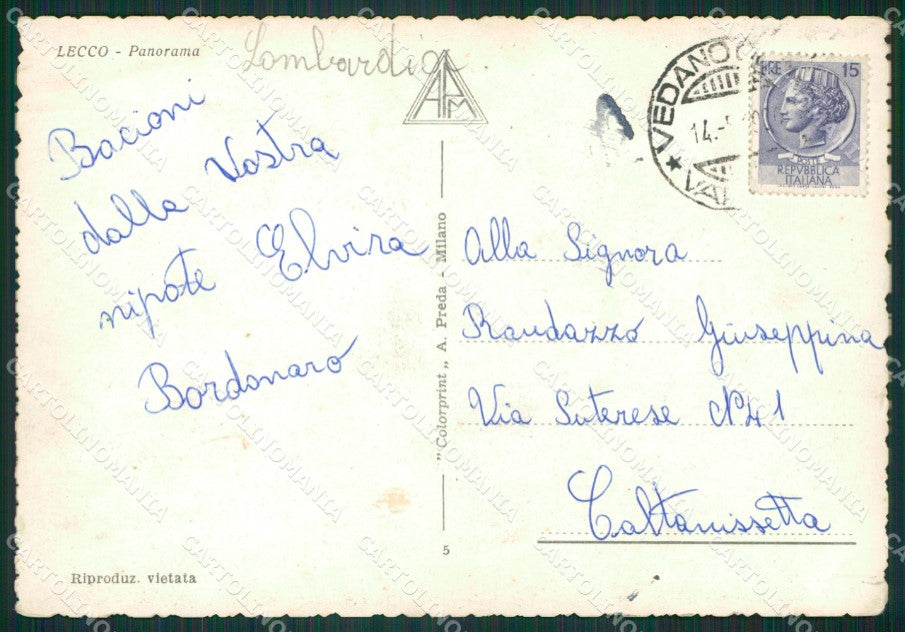 LECCO - Panorama
Lombardia
APM
Bacioni
dalla Vostra
nipote Elvira
Bordonaro
"Colorprint" A. Preda - Milano
VEDANO
14.
LIRE 15
POSTE
REPVBBLICA
ITALIANA
Alla Signora
Randazzo Giuseppina
Via Suterese N41
Caltanissetta
5
Riproduz. vietata
CARTOLINOMANIA